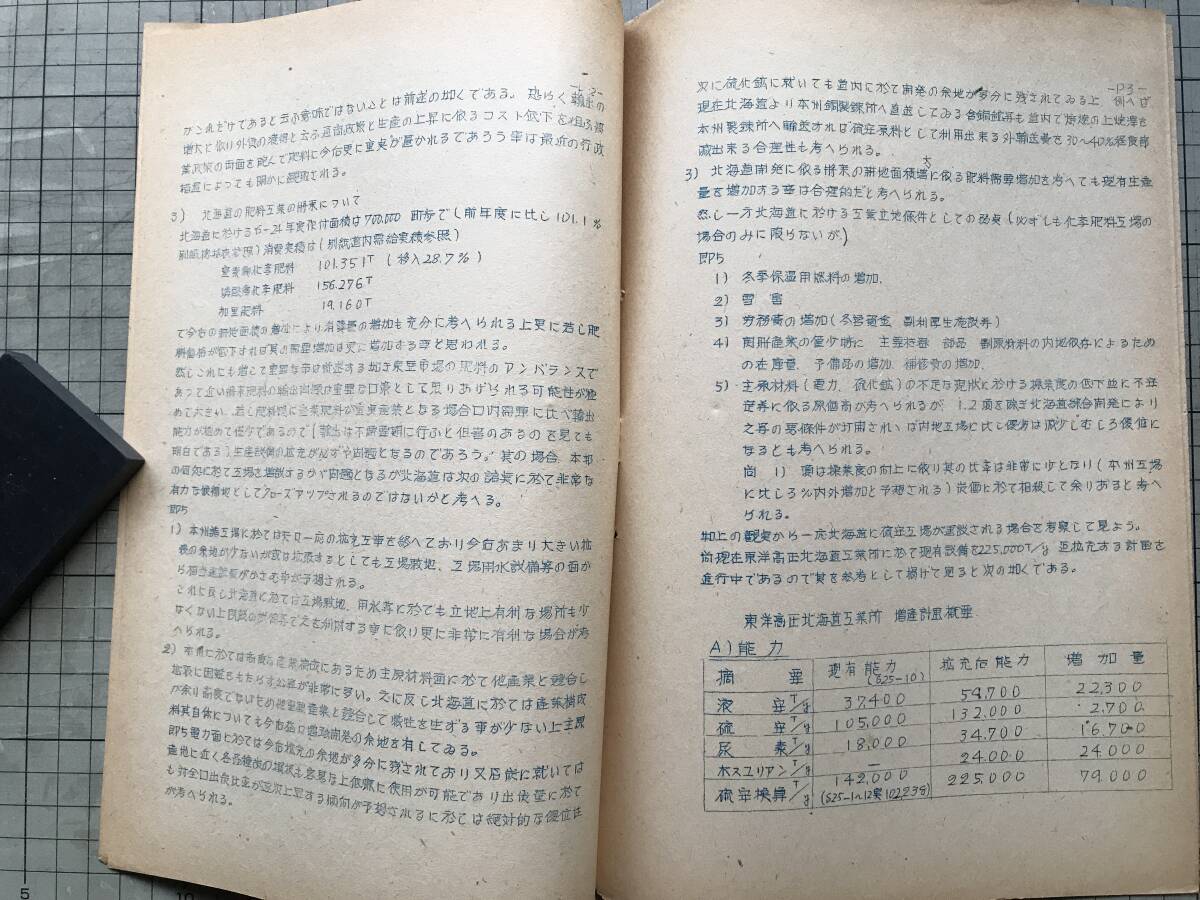 -P2-
がこれだけであると云ふ意味ではないことは前述の如くである。恐らく輸出の
増大に依り外貨の獲得と云ふ通商政策と生産の上昇に依るコスト低下を狙ふ
業政策の両面を睨んで肥料に今后更に重点が置かれるであろう事は最近の行政
措置によっても明かに観取される。
3) 北海道の肥料工業の将来について
北海道に於ける23-24年度作付面積は700,000町歩で(前年度に比し101.1%
別紙参照)消費実績は(別紙道内需給実績参照)
窒素質化学肥料 101.351T (移入28.7%)
燐酸質化学肥料 156.276T
加里肥料 19.160T
で今后の耕地面積の増加により消費量の増加も充分に考へられる上更に若し肥
料価格が低下すれば其の需要増加は更に増加する事と思われる。
然しこれにも増して重要な事は前述する如き東亜市場の肥料のアンバランスで
あって近い将来肥料の輸出問題は重要な口策として取りあげられる可能性が極
めて大きい。若し肥料特に窒素肥料が重点産業となる場合口内需要に比べ輸出
能力が極めて僅少であるので(輸出は不需要期に行ふと但書のあるのを見ても
明白である)生産設備の拡充が必ずや問題となるのであろう。其の場合、本邦
の何処に於て工場を増設するかゞ問題となるが北海道は次の諸点に於て非常な
有力な候補地としてクローズアップされるのではないかと考へる。
即ち
1) 本州諸工場に於ては天ロ一応の拡充工事を終へており今后あまり大きい拡
張の余地が少ないが或は拡張するとしても工場敷地、工場用水設備等の面か
ら相当建設費がかさむ事が予想される。
これに反し北海道に於ては工場敷地、用水等に於ても立地上有利な場所も少
なくない上既設の設備等で之を利用する事に依り更に非常に有利な場合が考
へられる。
2) 本州に於ては高度な産業構成にあるため主原材料面に於て他産業と競合し
拡張に困難をもたらす公算が非常に多い。之に反し北海道に於ては産業構成
が余り高度でないため他重要産業と競合して犠牲を生ずる事が少ない上主原
料其自体についても今后益口増強開発の余地を有してゐる。
即ち電力面に於ては今后拡充の余地が多分に残されており又石炭に就いては
産地に近く各種炭の撰択も容易な上低廉に使用が可能であり出炭量に於て
も対全口出炭比率が逐次上昇する傾向が予想されるに於ては絶対的な優位性
が考へられる。
-P3-
次に硫化鉱に就いても道内に於て開発の余地が多分に残されてゐる上 例へば
現在北海道より本州銅製錬所へ直送してゐる含銅鉱等も道内で焙焼の上焼滓を
本州製錬所へ輸送すれば硫安原料として利用出来る外輸送費を30〜40%程度節
減出来る合理性も考へられる。
3) 北海道開発に依る将来の耕地面積増大に依る肥料需要増加を考へても現有生産
量を増加する事は合理的だと考へられる。
然し一方北海道に於ける工業立地條件としての弱点(必ずしも化学肥料工場の
場合のみに限らないが)
即ち
1) 冬季保温用燃料の増加.
2) 雪害
3) 労務費の増加(冬営資金 副利厚生施設等)
4) 関聯産業の僅少特に 主要機器 部品 副原材料の内地依存によるため
の在庫量、予備品の増加、補修費の増加.
5) 主原材料(電力、硫化鉱)の不足な現状に於ける操業度の低下並に不安
定等に依る原価高が考へられるが、1.2項を除き北海道綜合開発により
之等の悪條件が打開されゝば内地工場に比し優劣は減少しむしろ優位に
なるとも考へられる。
尚 1) 項は操業度の向上に依り其の比率は非常に少となり(本州工場
に比し3%内外増加と予想される)炭価に於て相殺して余りあると考へ
られる。
如上の観点から一応北海道に硫安工場が建設される場合を考察して見よう。
尚現在東洋高圧北海道工業所に於て現有設備を225,000T/y 迄拡充する計画を
進行中であるので其を参考として掲げて見ると次の如くである。
東洋高圧北海道工業所 増産計画概要
A) 能力
摘要 現有能力(S25-10) 拡充后能力 増加量
液安 T/y 37,400 54,700 22,300
硫安 T/y 105,000 132,000 2,700
尿素 T/y 18,000 34,700 16,700
ホスユリアン T/y — 24,000 24,000
硫安換算 T/y 142,000 (S25-1〜12実102,238) 225,000 79,000